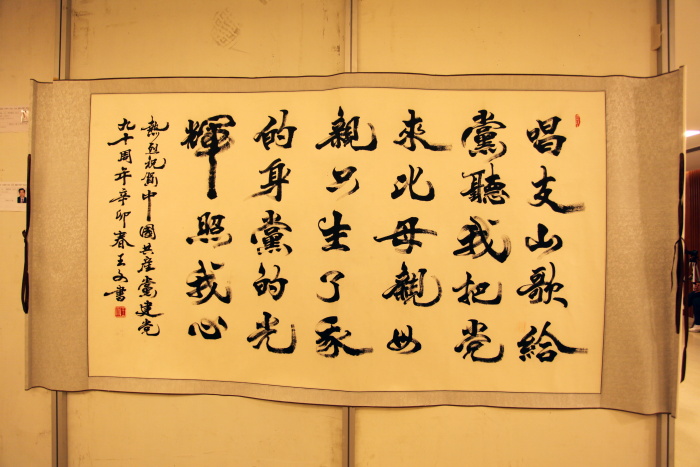 唱支山歌給
黨聽我把党
來比母親母
親只生了我
的身黨的光
輝照我心
熱烈祝賀中國共產黨建党
九十周年辛卯春王文書